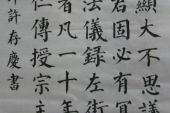 顯大不思議
君固必有冥
法儀録左街
者凡一十年
仁傳授宗主
中許存慶書